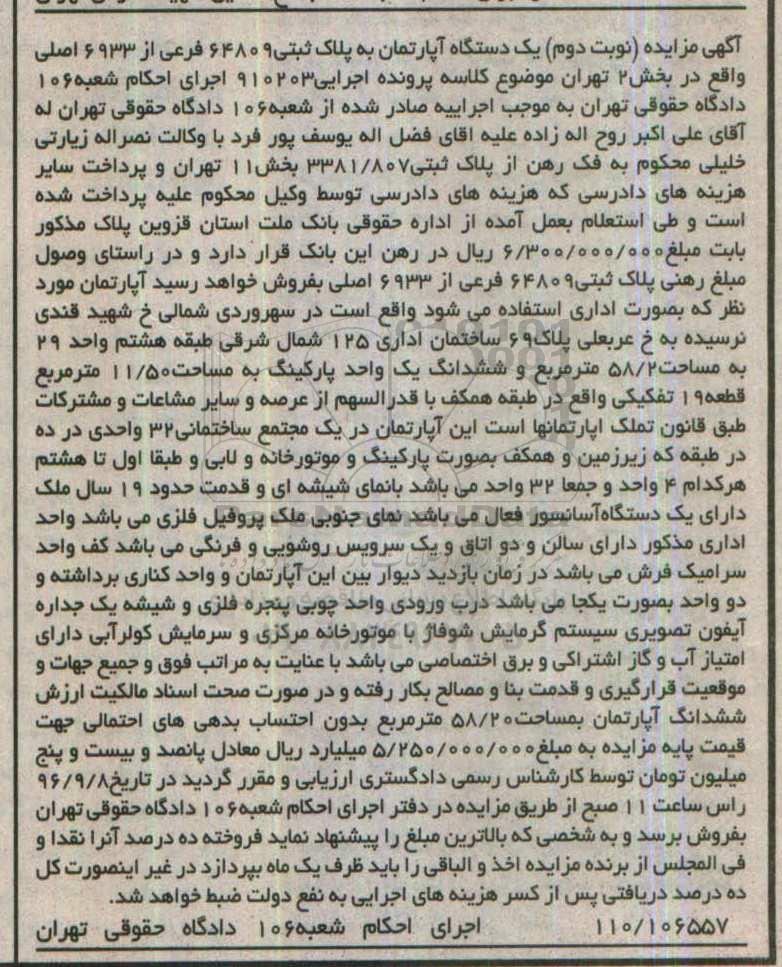 آگهی مزایده (نوبت دوم) یک دستگاه آپارتمان به پلاک ثبتی۶۴۸۰۹ فرعی از ۶۹۳۳ اصلی
واقع در بخش۲ تهران موضوع کلاسه پرونده اجرایی۹۱۰۲۰۳ اجرای احکام شعبه۱۰۶
دادگاه حقوقی تهران به موجب اجراییه صادر شده از شعبه۱۰۶ دادگاه حقوقی تهران له
آقای علی اکبر روح اله زاده علیه اقای فضل اله یوسف پور فرد با وکالت نصراله زیارتی
خلیلی محکوم به فک رهن از پلاک ثبتی۳۳۸۱/۸۰۷ بخش۱۱ تهران و پرداخت سایر
هزینه های دادرسی که هزینه های دادرسی توسط وکیل محکوم علیه پرداخت شده
است و طی استعلام بعمل آمده از اداره حقوقی بانک ملت استان قزوین پلاک مذکور
بابت مبلغ۶/۳۰۰/۰۰۰/۰۰۰ ریال در رهن این بانک قرار دارد و در راستای وصول
مبلغ رهنی پلاک ثبتی۶۴۸۰۹ فرعی از ۶۹۳۳ اصلی بفروش خواهد رسید آپارتمان مورد
نظر که بصورت اداری استفاده می شود واقع است در سهروردی شمالی خ شهید قندی
نرسیده به خ عربعلی پلاک۶۹ ساختمان اداری ۱۲۵ شمال شرقی طبقه هشتم واحد ۲۹
به مساحت۵۸/۲ مترمربع و ششدانگ یک واحد پارکینگ به مساحت۱۱/۵۰ مترمربع
قطعه۱۹ تفکیکی واقع در طبقه همکف با قدرالسهم از عرصه و سایر مشاعات و مشترکات
طبق قانون تملک اپارتمانها است این آپارتمان در یک مجتمع ساختمانی۳۲ واحدی در ده
در طبقه که زیرزمین و همکف بصورت پارکینگ و موتورخانه و لابی و طبقا اول تا هشتم
هرکدام ۴ واحد و جمعا ۳۲ واحد می باشد بانمای شیشه ای و قدمت حدود ۱۹ سال ملک
دارای یک دستگاهآسانسور فعال می باشد نمای جنوبی ملک پروفیل فلزی می باشد واحد
اداری مذکور دارای سالن و دو اتاق و یک سرویس روشویی و فرنگی می باشد کف واحد
سرامیک فرش می باشد در زمان بازدید دیوار بین این آپارتمان و واحد کناری برداشته و
دو واحد بصورت یکجا می باشد درب ورودی واحد چوبی پنجره فلزی و شیشه یک جداره
آیفون تصویری سیستم گرمایش شوفاژ با موتورخانه مرکزی و سرمایش کولرآبی دارای
امتیاز آب و گاز اشتراکی و برق اختصاصی می باشد با عنایت به مراتب فوق و جمیع جهات و
موقعیت قرارگیری و قدمت بنا و مصالح بکار رفته و در صورت صحت اسناد مالکیت ارزش
ششدانگ آپارتمان بمساحت۵۸/۲۰ مترمربع بدون احتساب بدهی های احتمالی جهت
قیمت پایه مزایده به مبلغ۵/۲۵۰/۰۰۰/۰۰۰ میلیارد ریال معادل پانصد و بیست و پنج
میلیون تومان توسط کارشناس رسمی دادگستری ارزیابی و مقرر گردید در تاریخ۹۶/۹/۸
راس ساعت ۱۱ صبح از طریق مزایده در دفتر اجرای احکام شعبه۱۰۶ دادگاه حقوقی تهران
بفروش برسد و به شخصی که بالاترین مبلغ را پیشنهاد نماید فروخته ده درصد آنرا نقدا و
فی المجلس از برنده مزایده اخذ و الباقی را باید ظرف یک ماه بپردازد در غیر اینصورت کل
ده درصد دریافتی پس از کسر هزینه های اجرایی به نفع دولت ضبط خواهد شد.
۱۱۰/۱۰۶۵۵۷ اجرای احکام شعبه۱۰۶ دادگاه حقوقی تهران